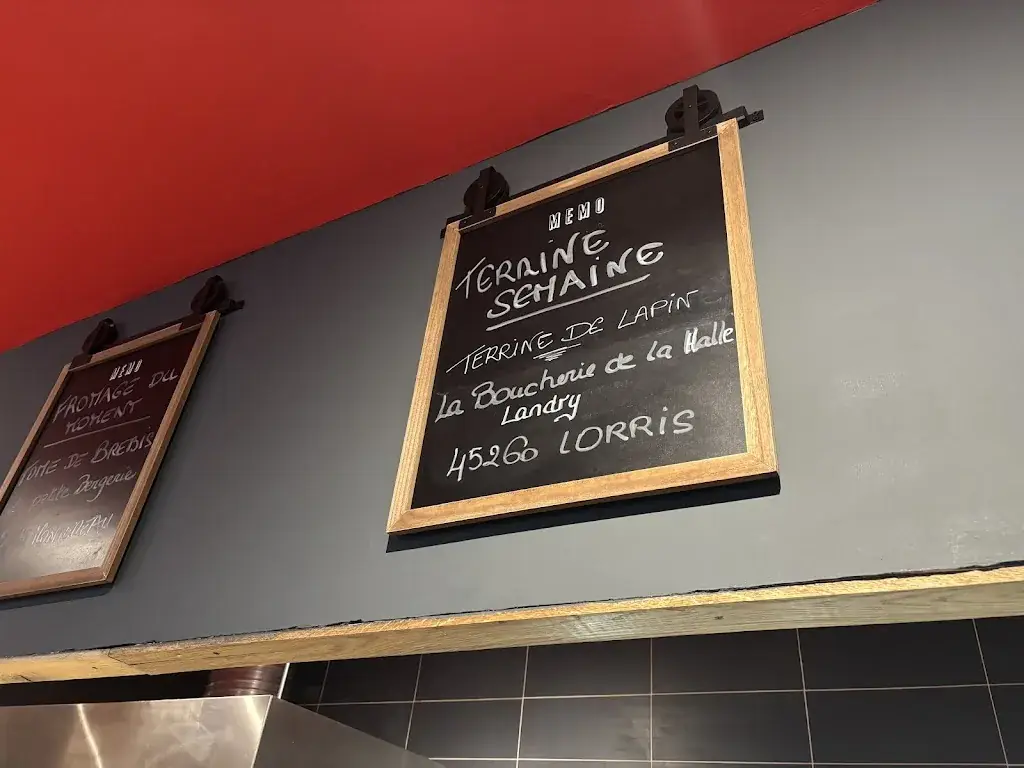 MEMO
FROMAGE DU
MOMENT
TOME DE BREBIS
MEMO
TERRINE
SEMAINE
TERRINE DE LAPIN
La Boucherie de la Halle
Landry
45260 LORRIS